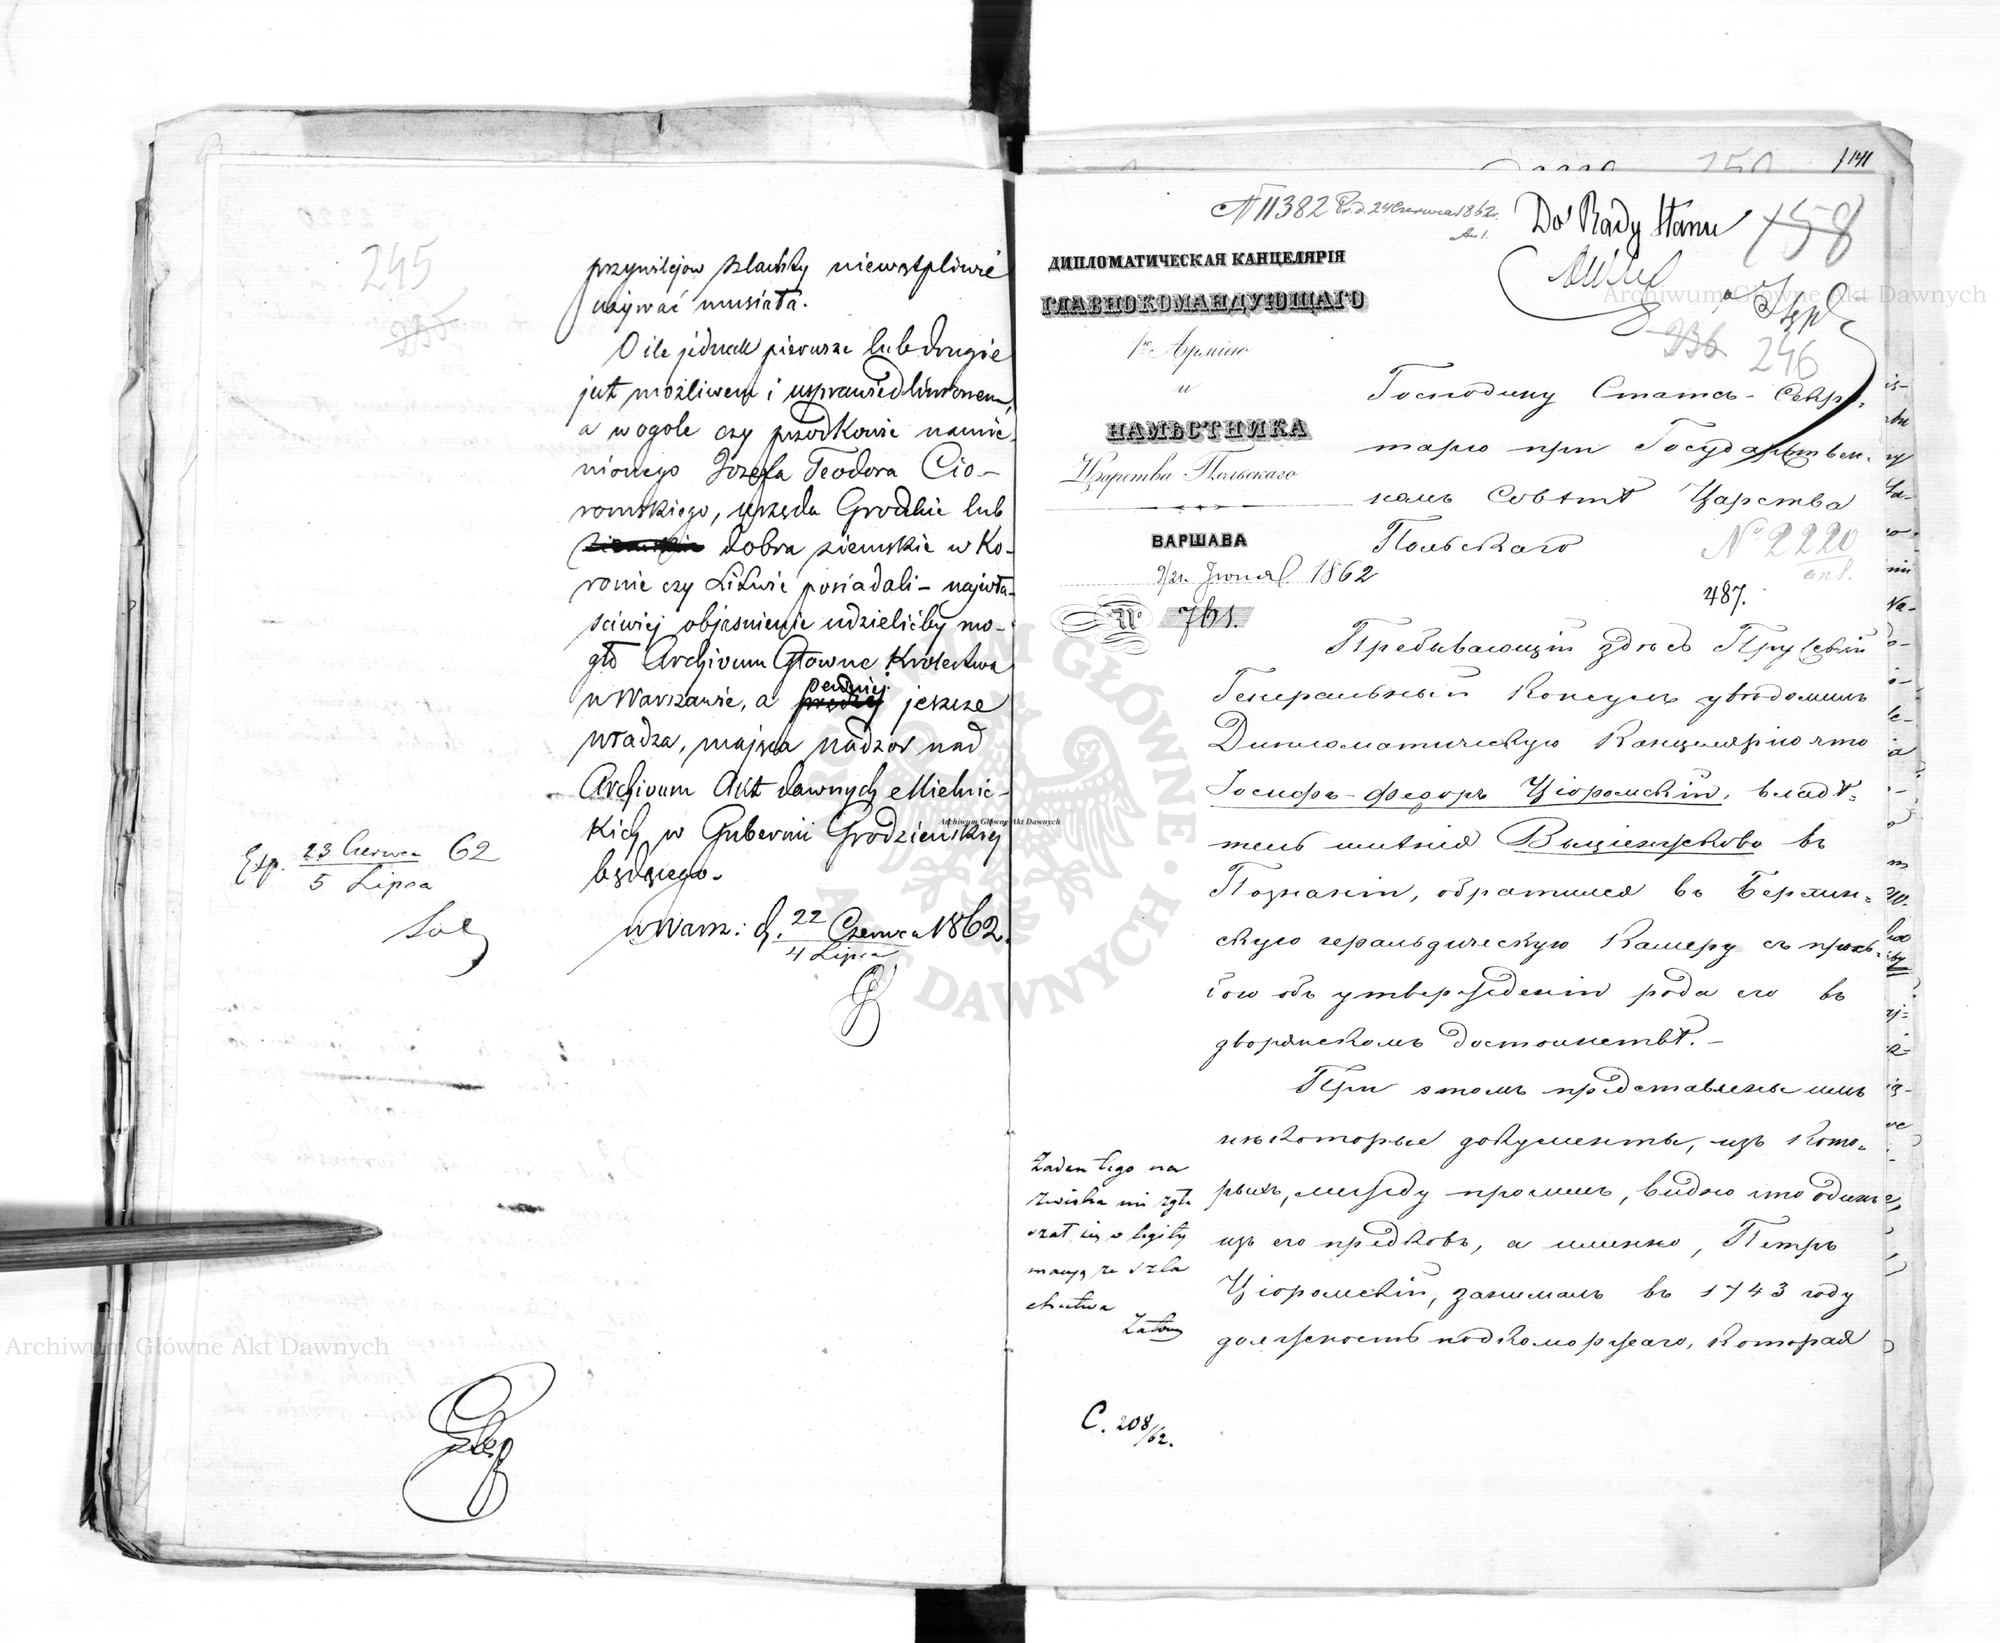 245
236
przywilejow szlachty niewątpliwie
używać musiała.
O ile jednak pierwsze lub drugie
jest możliwem i usprawiedliwionem,
a wogole czy przodkowie namie-
nionego Jozefa Teodora Cio-
romskiego, urzęda Grodzkie lub
ziemskie dobra ziemskie w Ko-
ronie czy Litwie posiadali – najwła-
sciwiej objasnienie udzielićby mo-
gło Archivum Głowne Krolestwa
w Warszawie, a pewniej jeszcze
władza, mająca nadzor nad
Archivum Akt dawnych Mielnic-
kich w Gubernii Grodzienskiej
będącego.
w Warsz: d. 22 Czerwca 1862.
4 Lipca
Exp. 23 Czerwca 62
5 Lipca
141
150
№ 11382 Pr. d. 24 Czerwca 1862.
Do Rady Stanu
158
236
246
ДИПЛОМАТИЧЕСКАЯ КАНЦЕЛЯРІЯ
ГЛАВНОКОМАНДУЮЩАГО
1ю Арміею
и
НАМѢСТНИКА
Царства Польскаго
ВАРШАВА
9/21 Іюня 1862
№ 761.
Господину Статсъ-Секре-
тарю при Государствен-
номъ Совѣтѣ Царства
Польскаго
№ 2220
487.
Пребывающій здѣсь Прусскій
Генеральный Консулъ увѣдомилъ
Дипломатическую Канцелярію что
Іосифъ-Федоръ Ціоромскій, владѣ-
тель имѣнія Выціонжково въ
Познаніи, обратился въ Берлин-
скую геральдическую Камеру съ прось-
бою объ утвержденіи рода его въ
дворянскомъ достоинствѣ. –
При этомъ представлены имъ
нѣкоторые документы, изъ кото-
рыхъ, между прочимъ, видно что одинъ
изъ его предковъ, а именно, Петръ
Ціоромскій, занималъ въ 1743 году
должность подкоморжаго, которая
Żaden tego na
zwiska nie zgła
szał się o legity
mację ze szla
chectwa
C. 208/62.
Archiwum Główne Akt Dawnych
Archiwum Główne Akt Dawnych
Archiwum Główne Akt Dawnych
ARCHIWUM GŁÓWNE AKT DAWNYCH